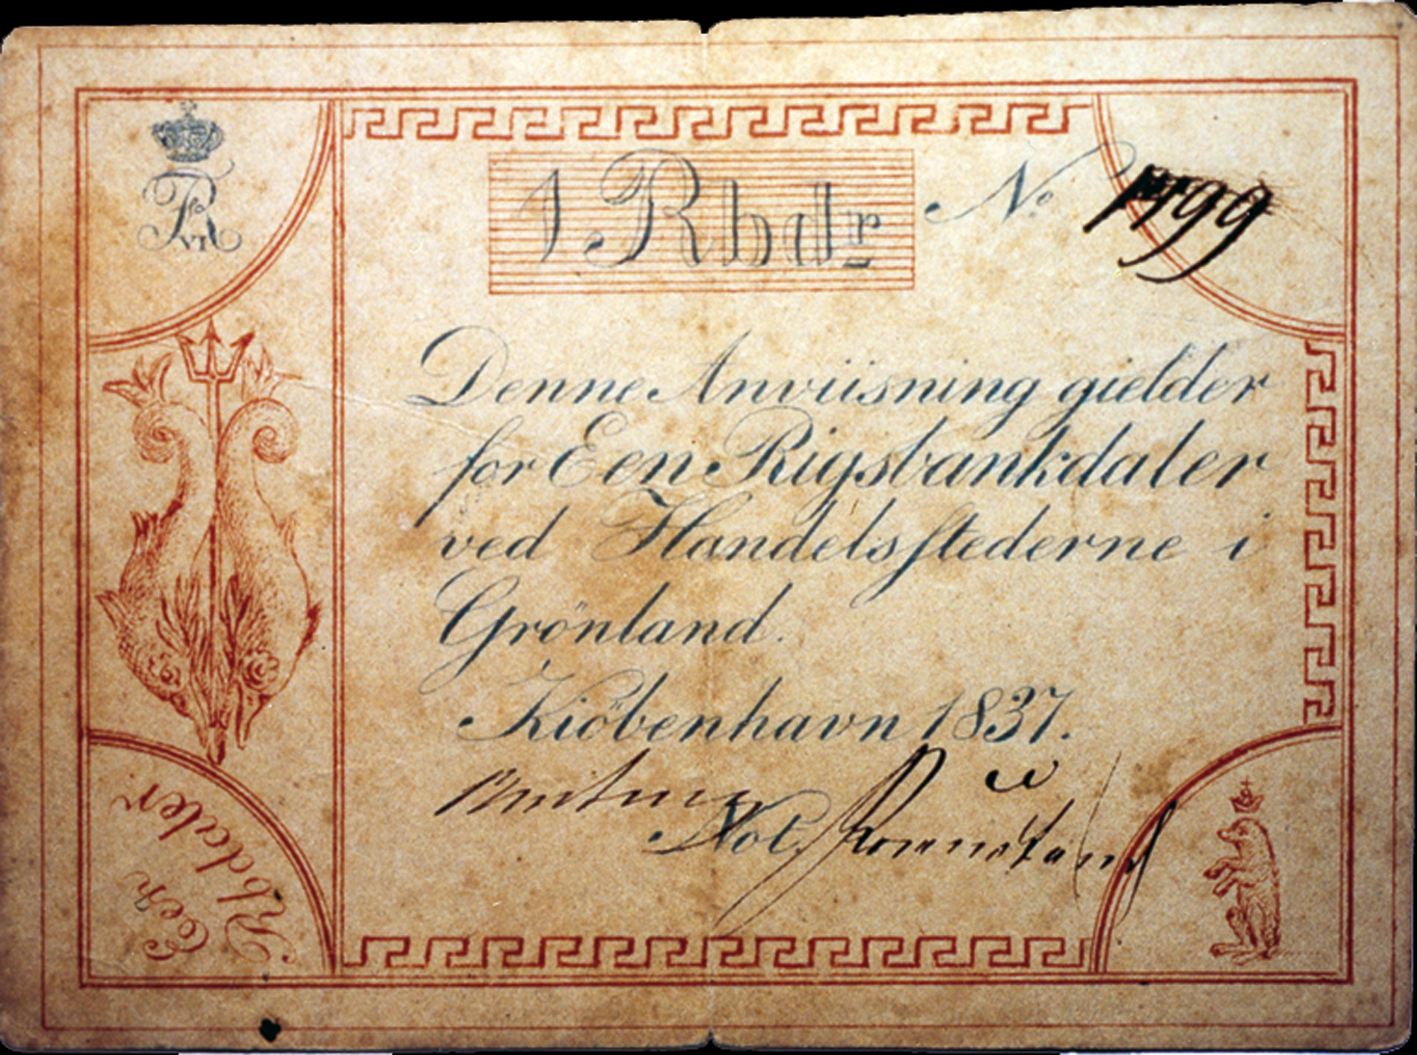 FR VI
1 Rbdr No
Denne Anviisning gielder
for Een Rigsbankdaler
ved Handelsstederne i
Grönland.
Kiöbenhavn 1837.
Not.
Een
Rbdaler